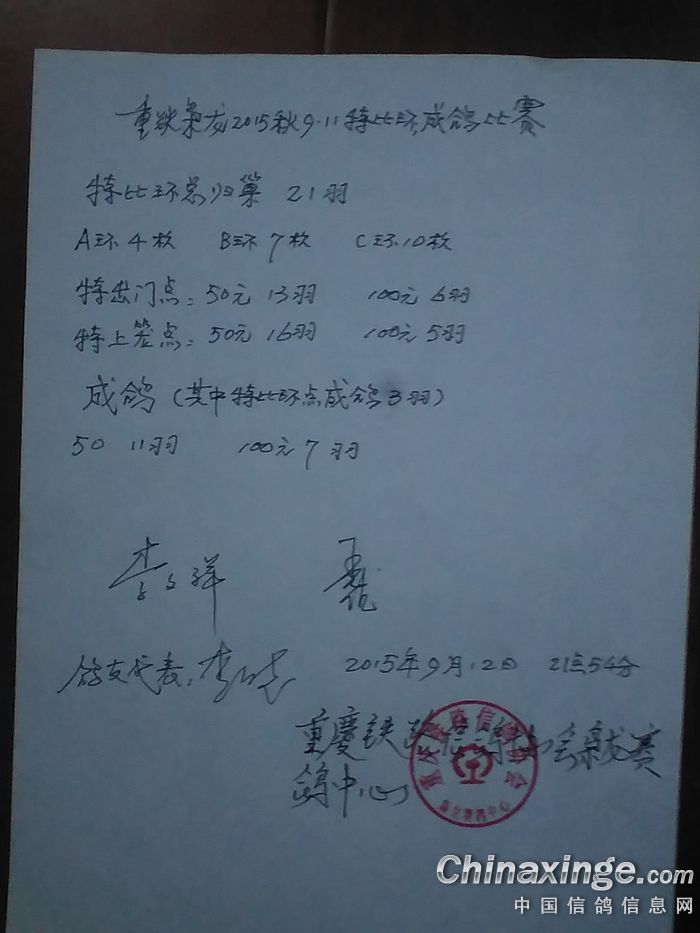 重铁枭龙2015秋9.11特比环,成鸽比赛
特比环总归巢 21羽
A环4枚 B环7枚 C环10枚
特出门点:50元 13羽 100元 6羽
特上笼点:50元 16羽 100元 5羽
成鸽(其中特比环点成鸽3羽)
50 11羽 100元 7羽
李文祥
鸽友代表:李
2015年9月12日 21点54分
重庆铁路信鸽协会枭龙赛
鸽中心
Chinaxinge.com
中国信鸽信息网